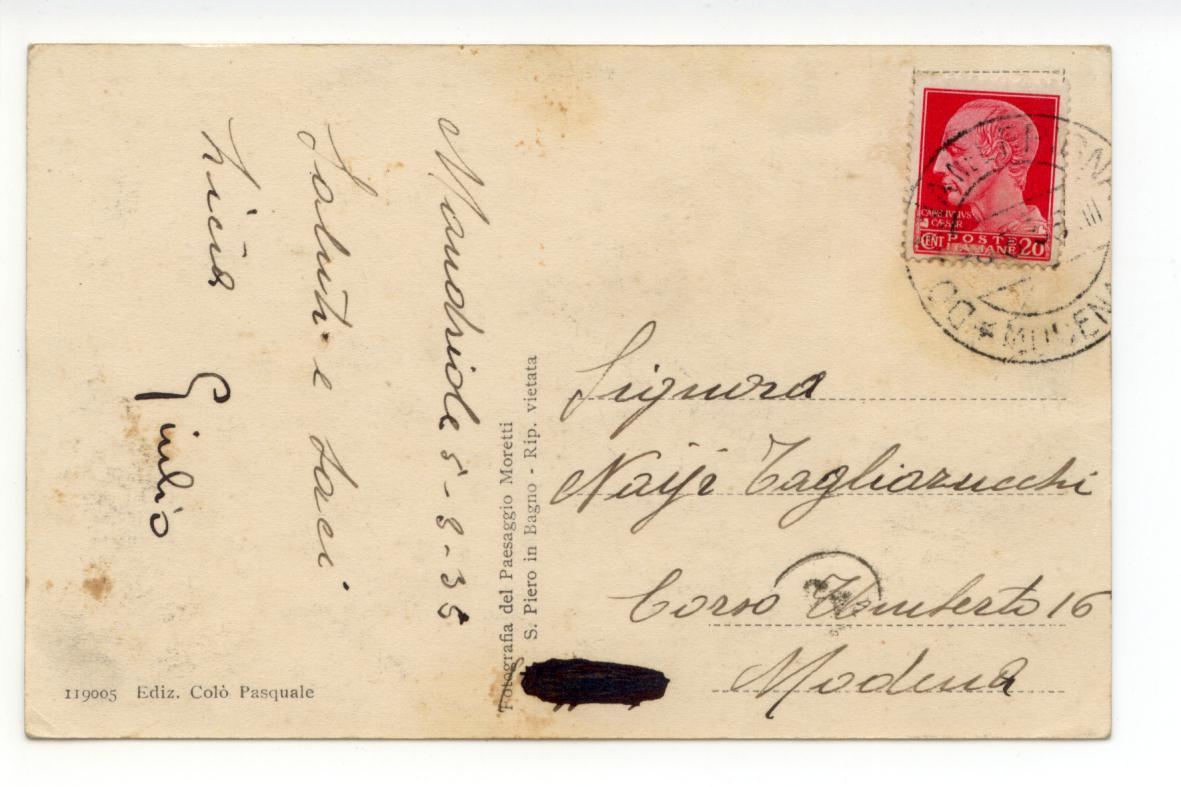 Mandriole 5-8-35
Saluti e baci
Licia Giulio
119005 Ediz. Colò Pasquale
Fotografia del Paesaggio Moretti
S. Piero in Bagno - Rip. vietata
CAIVS IVLIVS
CÆSAR
CENT POSTE ITALIANE 20
MODENA
Signora
Tagliazucchi
Corso Umberto 16
Modena